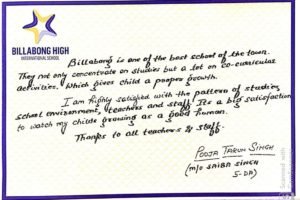 BILLABONG HIGH
INTERNATIONAL SCHOOL
Billabong is one of the best school of the town.
They not only concentrate on studies but a lot on co-curricular
activities. Which gives child a proper growth.
I am highly satisfied with the pattern of studies
school environment, teachers and staff. Its a big satisfaction
to watch my childs growing as a good human.
Thanks to all teachers & staff.
POOJA TARUN SINGH
(m/o SAIBA SINGH
5-DA)
Scanned with